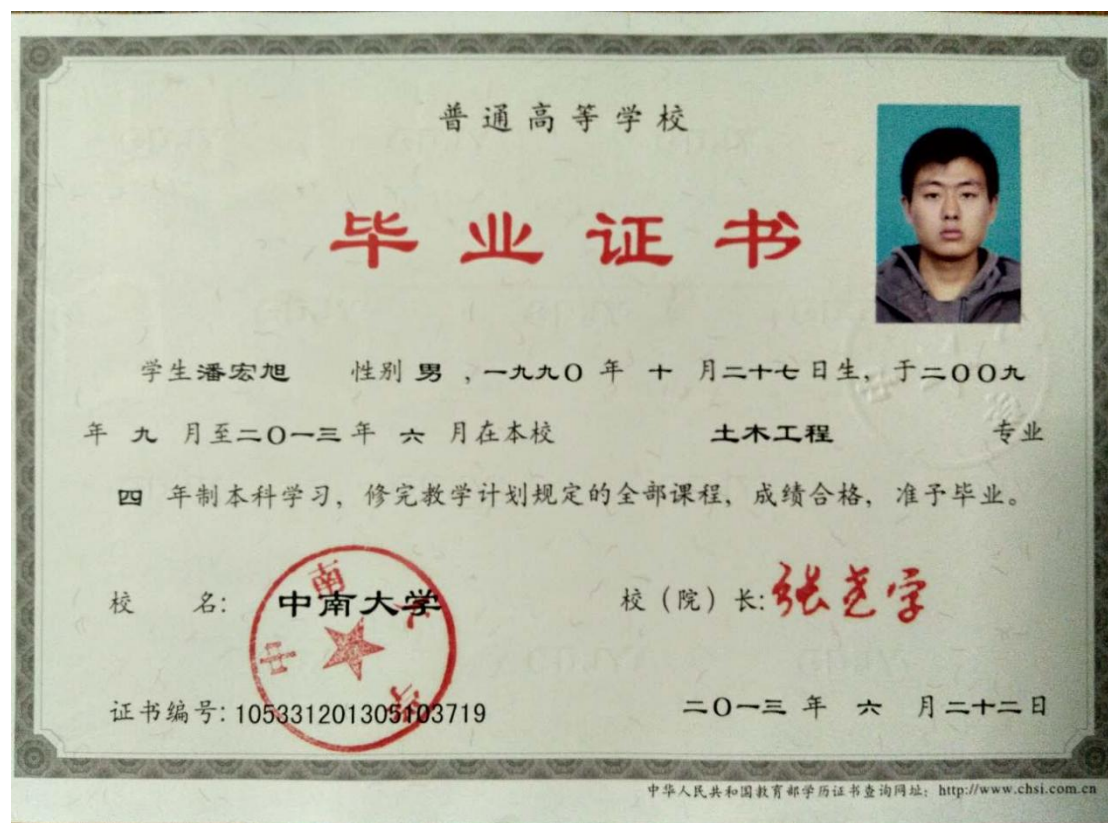 普通高等学校
毕业证书
学生潘宏旭 性别 男 ,一九九〇 年 十 月二十七日生, 于二〇〇九
年 九 月至二〇一三年 六 月在本校 土木工程 专业
四 年制本科学习, 修完教学计划规定的全部课程, 成绩合格, 准予毕业。
校 名: 中南大学
中南大学
校(院)长: 张尧学
证书编号: 105331201305103719
二〇一三 年 六 月二十二日
中华人民共和国教育部学历证书查询网址: http://www.chsi.com.cn